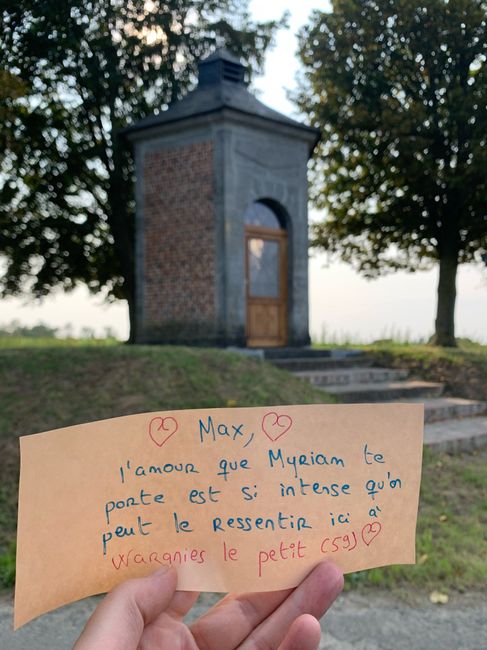 Max,
l'amour que Myriam te
porte est si intense qu'on
peut le ressentir ici à
Wargnies le petit (59)